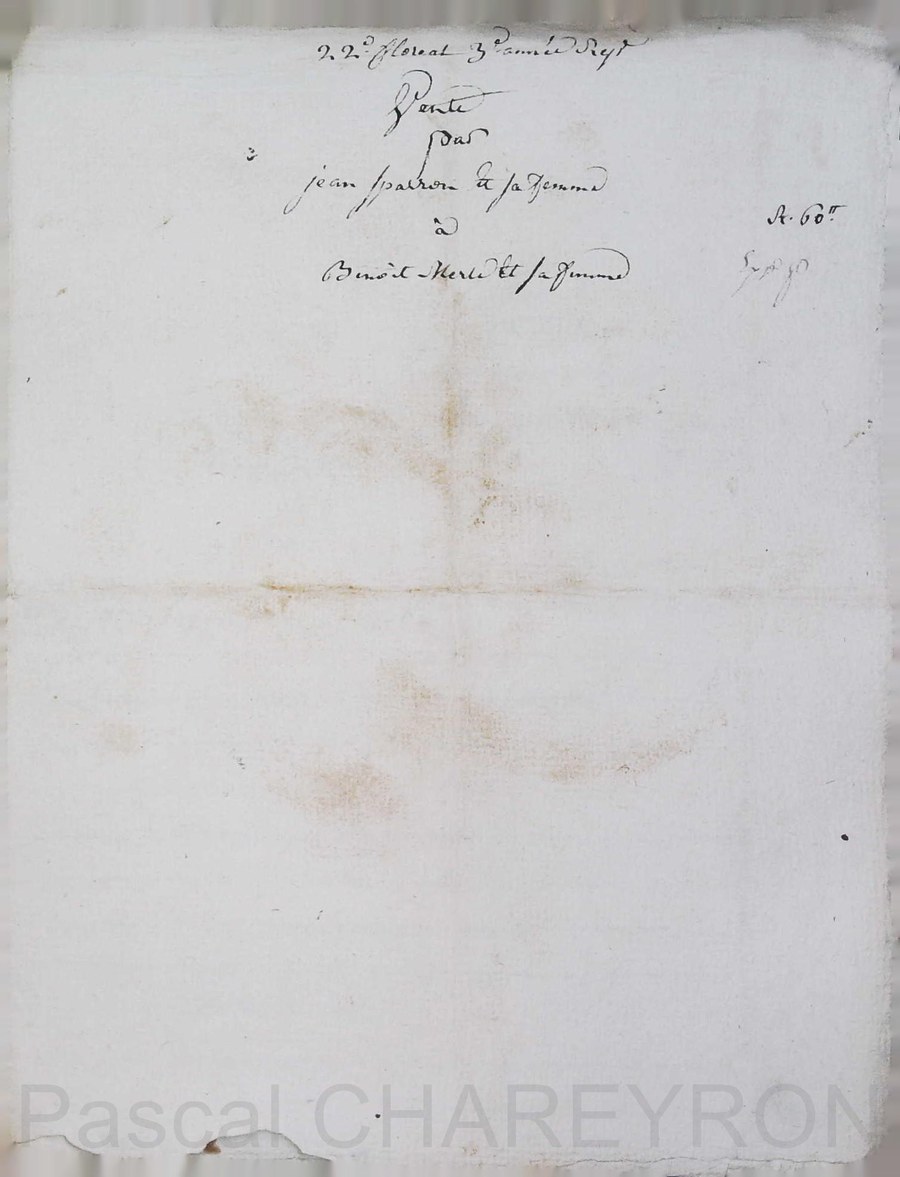 22e floreal 3e année Rep
Vente
par
jean sparron et sa femme
à
R. 60tt
Benoit Merle et sa femme
Pascal CHAREYRON